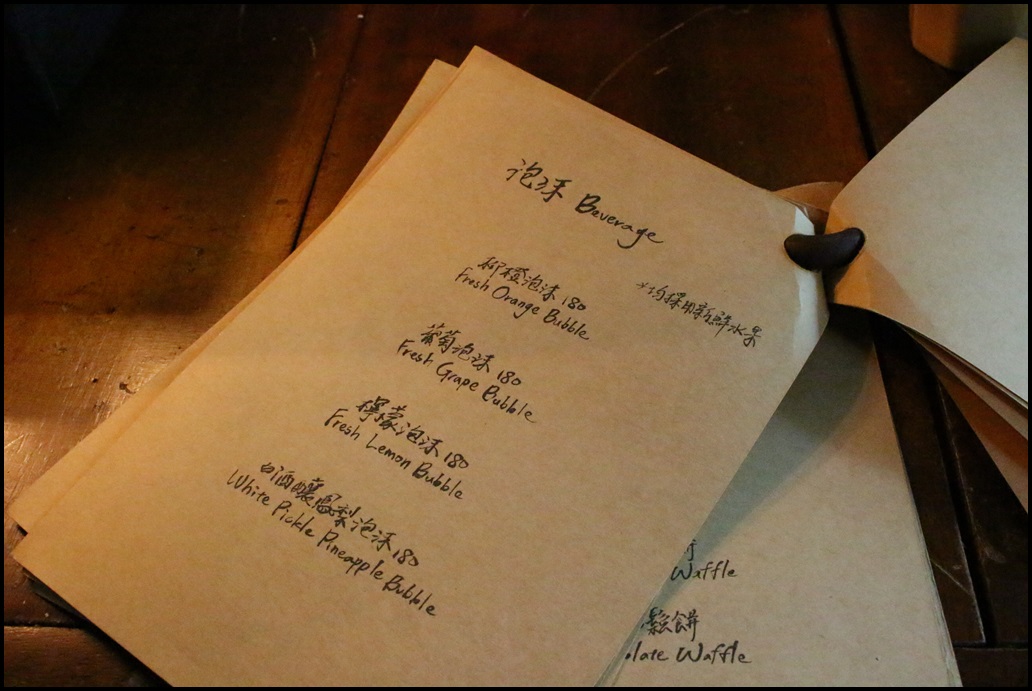 泡沫 Beverage
柳橙泡沫 180
Fresh Orange Bubble
*均採用新鮮水果
葡萄泡沫 180
Fresh Grape Bubble
檸檬泡沫 180
Fresh Lemon Bubble
白酒釀鳳梨泡沫 180
White Pickle Pineapple Bubble
Waffle
鬆餅
olate Waffle